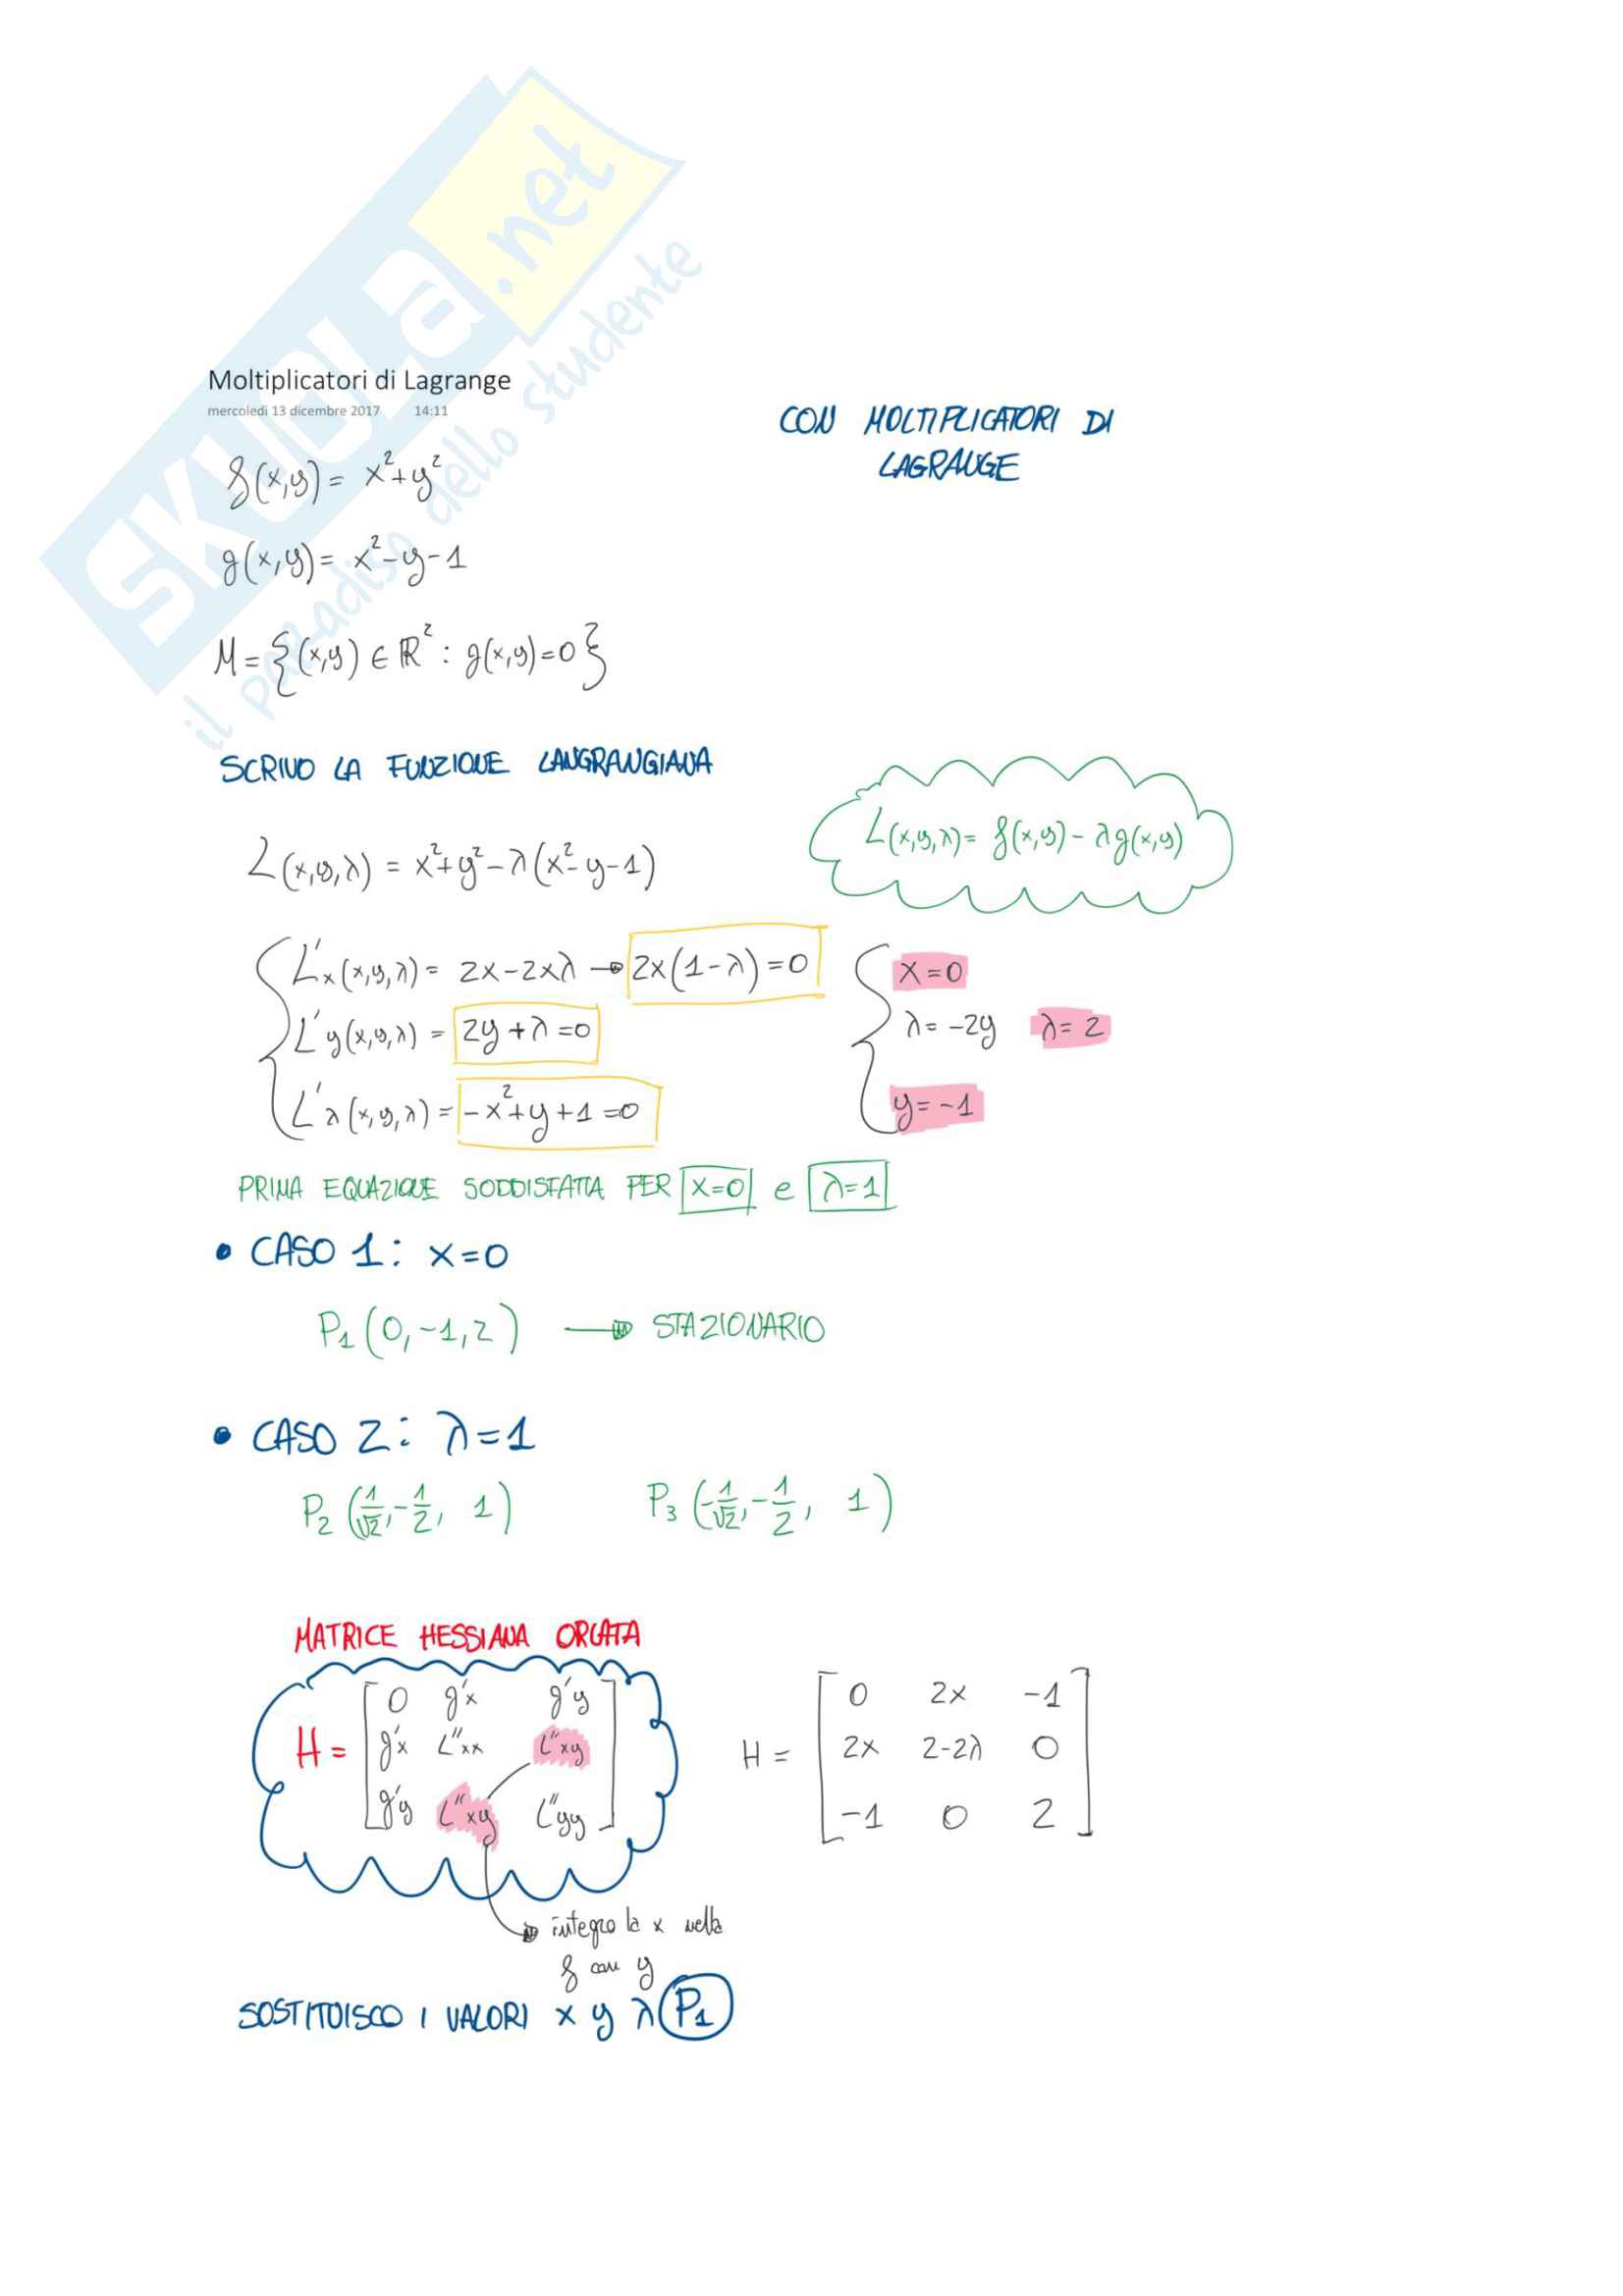 SKUOLa.net
il paradiso dello studente
Moltiplicatori di Lagrange
mercoledì 13 dicembre 2017 14:11
CON MOLTIPLICATORI DI
LAGRANGE
f(x,y) = x²+y²
g(x,y) = x²-y-1
M = {(x,y) ∈ ℝ² : g(x,y)=0}
SCRIVO LA FUNZIONE LANGRANGIANA
L(x,y,λ) = f(x,y) - λg(x,y)
L(x,y,λ) = x²+y²-λ(x²-y-1)
L'x(x,y,λ) = 2x-2xλ → 2x(1-λ)=0
L'y(x,y,λ) = 2y+λ=0
L'λ(x,y,λ) = -x²+y+1=0
x=0
λ=-2y λ=2
y=-1
PRIMA EQUAZIONE SODDISFATTA PER x=0 e λ=1
• CASO 1: x=0
P₁(0,-1,2) → STAZIONARIO
• CASO 2: λ=1
P₂(1/√2,-1/2, 1) P₃(-1/√2,-1/2, 1)
MATRICE HESSIANA ORLATA
H = [0 g'x g'y
g'x L''xx L''xy
g'y L''xy L''yy]
H = [0 2x -1
2x 2-2λ 0
-1 0 2]
→ integro la x nella
f con y
SOSTITUISCO I VALORI x y λ P₁